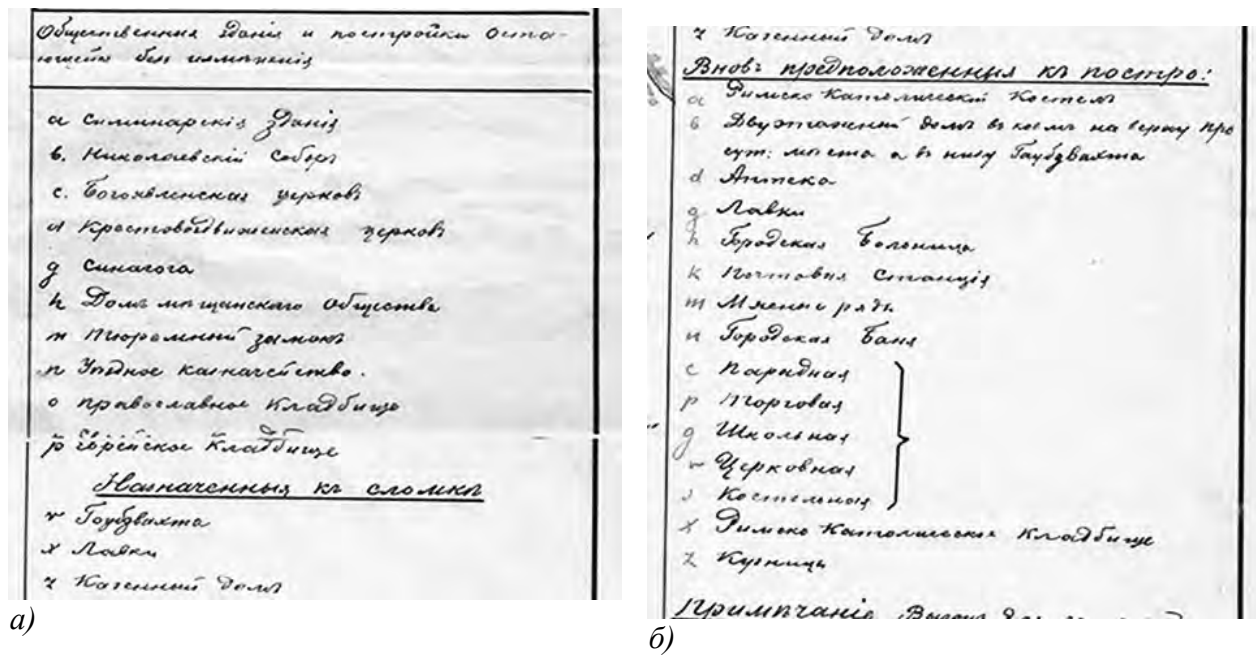 Общественныя зданія и постройки оста-
ющіяся безъ измѣненія
a Семинарскія зданія
b. Николаевскій Соборъ
c. Богоявленская церковь
d Крестовоздвиженская церковь
g Синагога
h Домъ мѣщанскаго Общества
m Тюремный замокъ
n Уѣздное казначейство.
o православное Кладбище
p Еврейское Кладбище
Назначенныя къ сломкѣ
r Гоубвахта
x Лавки
z Казенный домъ
а)
z Казенный домъ
Вновь предположенныя къ постро:
a Римско Католическій Костелъ
b Двухэтажный домъ въ коемъ на верху при
сут: мѣста а въ низу Гаубвахта
d Аптека
g Лавки
h Городская Больница
k Почтовая Станція
m Мясные ряды
n Городская Баня
c Парадная
p Торговая
g Школьная
r Церковная
s Костельная
x Римско Католическое Кладбище
z Кузницы
Примѣчаніе
б)